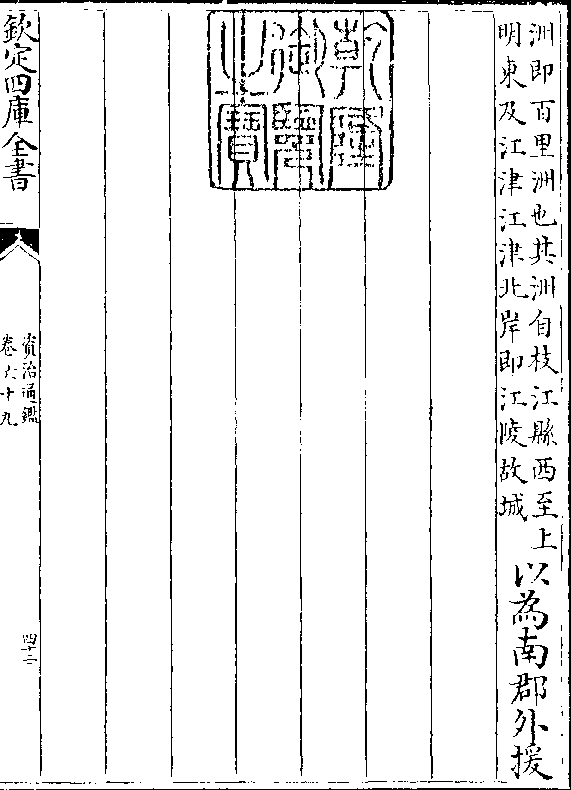 洲即百里洲也其洲自枝江縣西至上
明東及江津江津北岸即江陵故城
以為南郡外援
乾隆御覽之寶
欽定四庫全書
資治通鑑
卷六十九
四十二